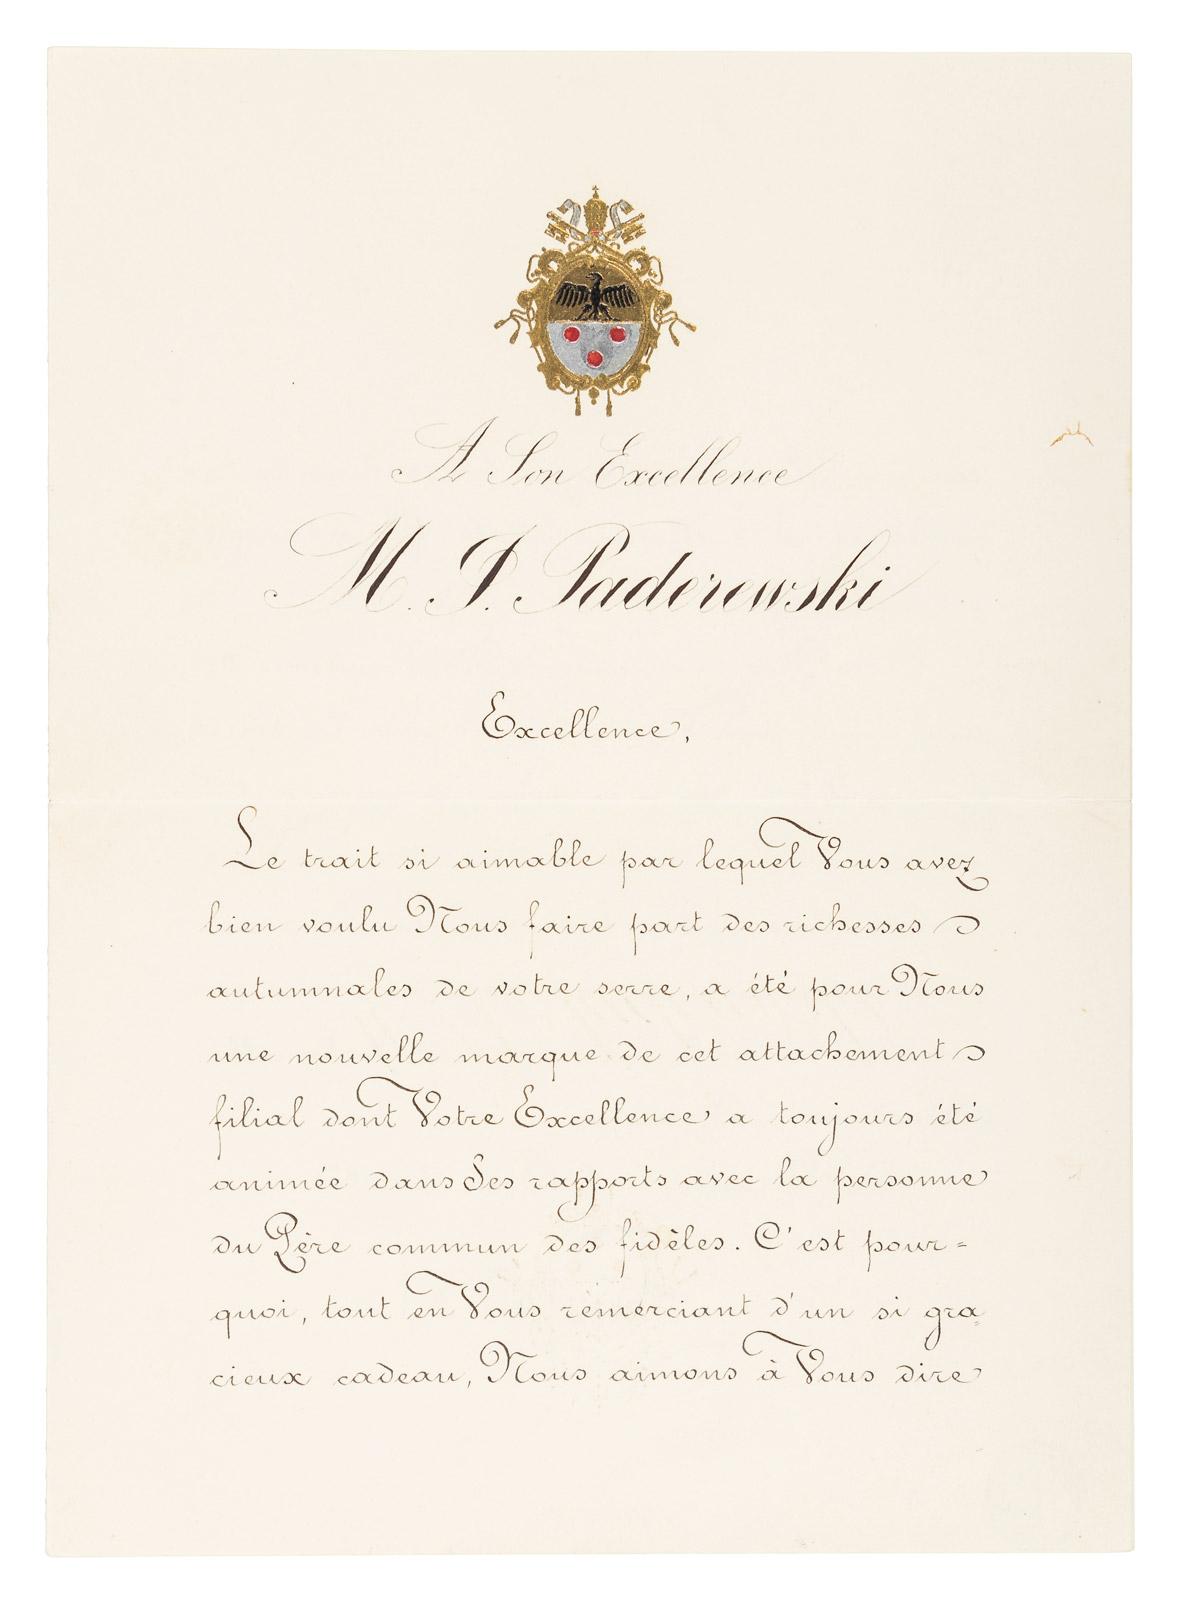 A Son Excellence
M. I. Paderewski
Excellence,
Le trait si aimable par lequel Vous avez
bien voulu Nous faire part des richesses
autumnales de votre serre, a été pour Nous
une nouvelle marque de cet attachement
filial dont Votre Excellence a toujours été
animée dans Ses rapports avec la personne
du Père commun des fidèles. C'est pour=
quoi, tout en Vous remerciant d'un si gra=
cieux cadeau, Nous aimons à Vous dire